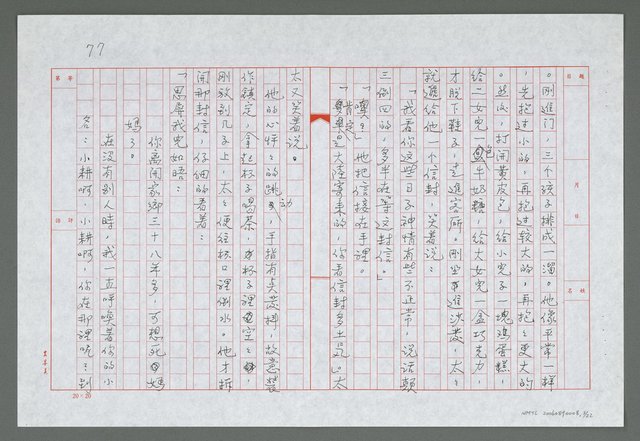 77
。剛進門，三个孩子排成一溜。他像平常一樣
，先抱过小的，再抱过較大的，再抱更大的
。然後，打開黄皮包，給小兒子一塊鸡蛋糕，
給二女兒一包牛奶糖，給大女兒一盒巧克力，
才脫下鞋子，走進客所。剛坐進沙发，太々
就遞給他一个信封，笑着说：
「我看你这些日子神情有些不正常，说話顛
三倒四的，多半在等这封信。」
「噢」他把信接在手裡。
「肯定是大陸寄來的，你看信封多土气。」太
太又笑着说。
他的心怦々的跳动，手指有点發抖，故意裝
作鎮定，拿起杯子喝茶，杯子裡空々，
剛放到几子上，太々便往杯口裡倒水。他才拆
開那封信，仔細的看着：
「思尋我兒如晤：
你离開家鄉三十八年多，可想死媽
媽了。
在沒有别人時，我一直呼喚著你的小
名：小耕啊，小耕啊，你在那裡呢？到
題目
月
日
姓名
章第
評語
20×20